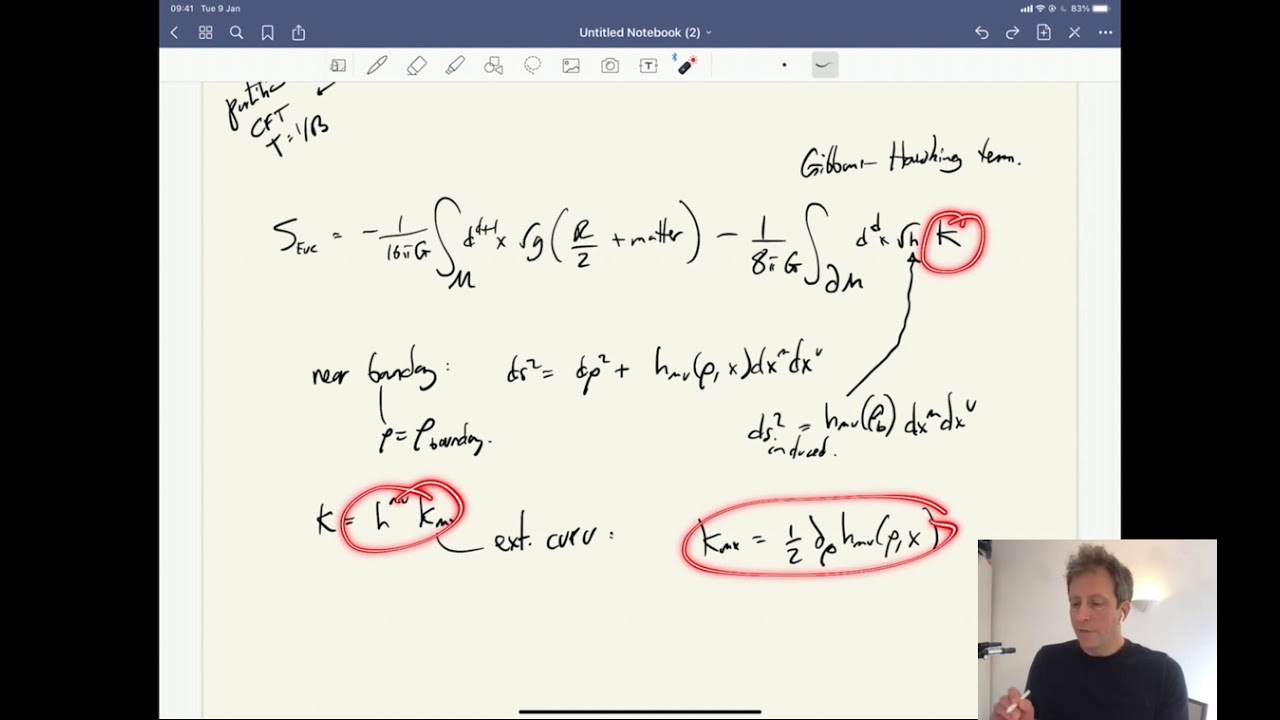 09:41 Tue 9 Jan
83%
Untitled Notebook (2)
CFT
T = 1/β
Gibbons-Hawking term.
S_Euc = - 1/16πG ∫_M d^{d+1}x √g ( R/2 + matter ) - 1/8πG ∫_∂M d^d x √h K
near boundary: ds² = dρ² + h_μν(ρ, x) dx^μ dx^ν
ρ = ρ_boundary.
ds²_induced. = h_μν(ρ_b) dx^μ dx^ν
K = h^μν K_μν
ext. curv :
K_μν = 1/2 ∂_ρ h_μν(ρ, x)